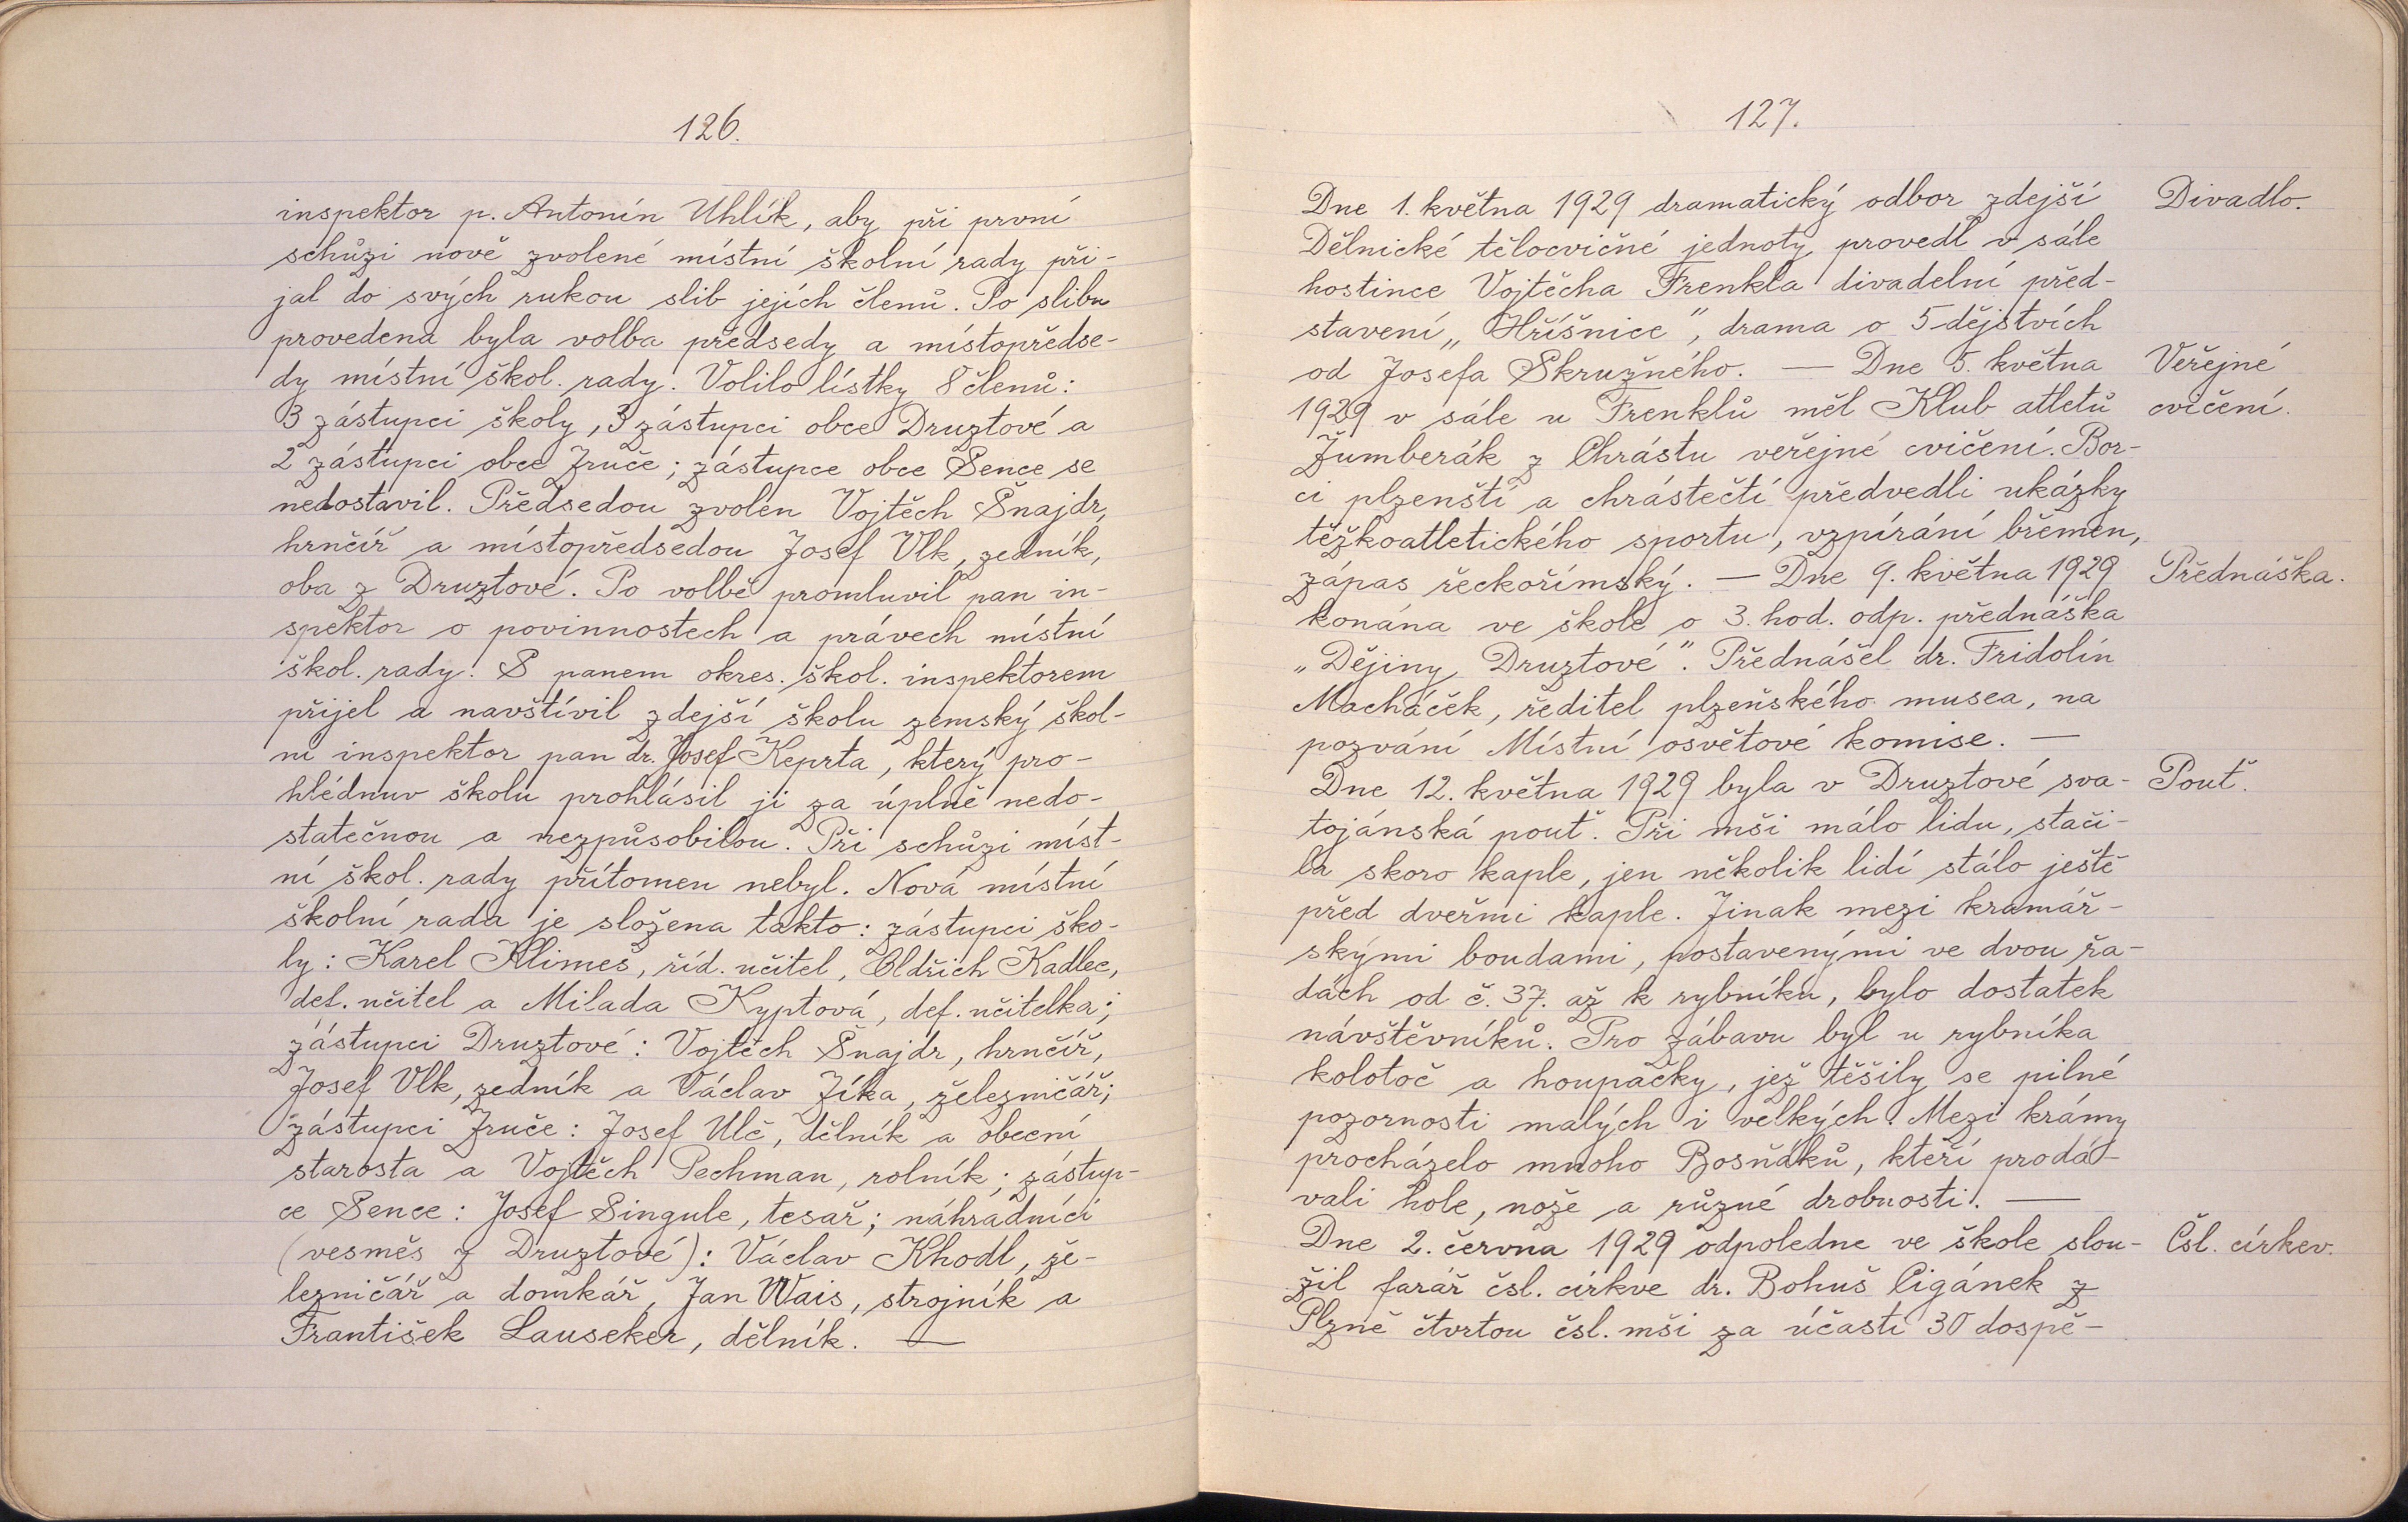 126.
inspektor p. Antonín Uhlík, aby při první
schůzi nově zvolené místní školní rady při-
jal do svých rukou slib jejích členů. Po slibu
provedena byla volba předsedy a místopředse-
dy místní škol. rady. Volilo lístky 8 členů:
3 zástupci školy, 3 zástupci obce Druztové a
2 zástupci obce Zruče; zástupce obce Sence se
nedostavil. Předsedou zvolen Vojtěch Šnajdr,
hrnčíř a místopředsedou Josef Vlk, zedník,
oba z Druztové. Po volbě promluvil pan in-
spektor o povinnostech a právech místní
škol. rady. S panem okres. škol. inspektorem
přijel a navštívil zdejší školu zemský škol-
ní inspektor pan dr. Josef Keprta, který pro-
hlédnuv školu prohlásil ji za úplně nedo-
statečnou a nezpůsobilou. Při schůzi míst-
ní škol. rady přítomen nebyl. Nová místní
školní rada je složena takto: zástupci ško-
ly: Karel Klimeš, říd. učitel, Oldřich Kadlec,
def. učitel a Milada Kyptová, def. učitelka;
zástupci Druztové: Vojtěch Šnajdr, hrnčíř,
Josef Vlk, zedník a Václav Zíka, železničář;
zástupci Zruče: Josef Ulč, dělník a obecní
starosta a Vojtěch Pechman, rolník; zástup-
ce Sence: Josef Singule, tesař; náhradníci
(vesměs z Druztové): Václav Khodl, že-
lezničář a domkář, Jan Wais, strojník a
František Lauseker, dělník. —
127.
Dne 1. května 1929 dramatický odbor zdejší Divadlo.
Dělnické tělocvičné jednoty provedl v sále
hostince Vojtěcha Frenkla divadelní před-
stavení „Hříšnice", drama o 5 dějstvích
od Josefa Skružného. — Dne 5. května Veřejné
1929 v sále u Frenklů měl Klub atletů cvičení.
Žumberák z Chrástu veřejné cvičení. Bor-
ci plzenští a chrástečtí předvedli ukázky
těžkoatletického sportu, vzpírání břemen,
zápas řeckořímský. — Dne 9. května 1929 Přednáška.
konána ve škole o 3. hod. odp. přednáška
„Dějiny Druztové". Přednášel dr. Fridolín
Macháček, ředitel plzeňského musea, na
pozvání Místní osvětové komise. —
Dne 12. května 1929 byla v Druztové sva- Pouť.
tojánská pouť. Při mši málo lidu, stači-
la skoro kaple, jen několik lidí stálo ještě
před dveřmi kaple. Jinak mezi kramář-
skými boudami, postavenými ve dvou řa-
dách od č. 37. až k rybníku, bylo dostatek
návštěvníků. Pro zábavu byl u rybníka
kolotoč a houpačky, jež těšily se pilné
pozornosti malých i velkých. Mezi krámy
procházelo mnoho Bosňáků, kteří prodá-
vali hole, nože a různé drobnosti. —
Dne 2. června 1929 odpoledne ve škole slou- Čsl. církev.
žil farář čsl. církve dr. Bohuš Cigánek z
Plzně čtvrtou čsl. mši za účasti 30 dospě-